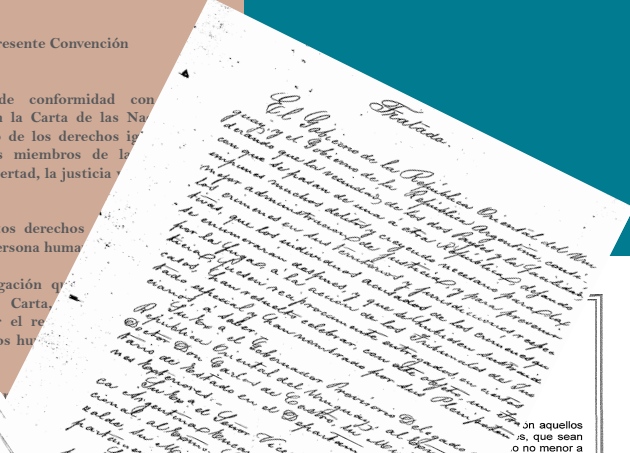 resente Convención
de conformidad con
la Carta de las Na
de los derechos ig
s miembros de la
ertad, la justicia
os derechos
ersona huma
gación qu
Carta,
r el re
os hu
Tratado.
El Gobierno de la República Oriental del Uru
guay, y el Gobierno de la República Argentina, consi
derando que
que se pasan de una a otra República, dejando
impunes muchos delitos, y creyendo necesario para la
mejor administracion de Justicia, y para prevenir
los crimenes en sus territorios y jurisdicciones respec
tivas, que los individuos acusados de los crimenes que
se enumeraran despues, y que se hubiesen sustraido
por la fuga a la accion de los Tribunales de Jus
ticia, fuesen reciprocamente entregados en ciertos
casos, han resuelto celebrar con tal objeto, un Tra
tado especial, y han nombrado por sus Plenipoten
ciarios, a saber
Su Exa el Gobernador Provisorio Delegado de la
República Oriental del Uruguay, al
Doctor Don Carlos de Castro, su Ministro Secre
tario de Estado en el Departamento
nes Exteriores.
Su Exa el Señor Vice
ca Argentina
cional, al
alde, su
partamen
on aquellos
s, que sean
o no menor a